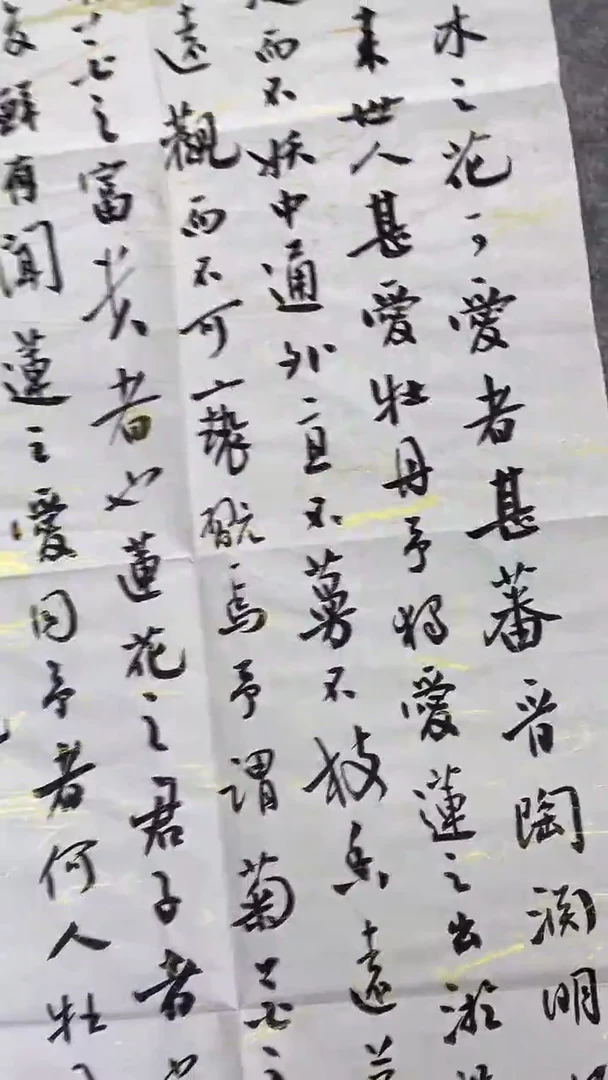 水之花可愛者甚蕃晋陶渊明
来世人甚愛牡丹予独愛蓮之出淤
而不妖中通外直不蔓不枝香遠益
遠觀而不可褻翫焉予謂菊花之
花之富贵者也蓮花之君子者也
鮮有聞蓮之愛同予者何人牡